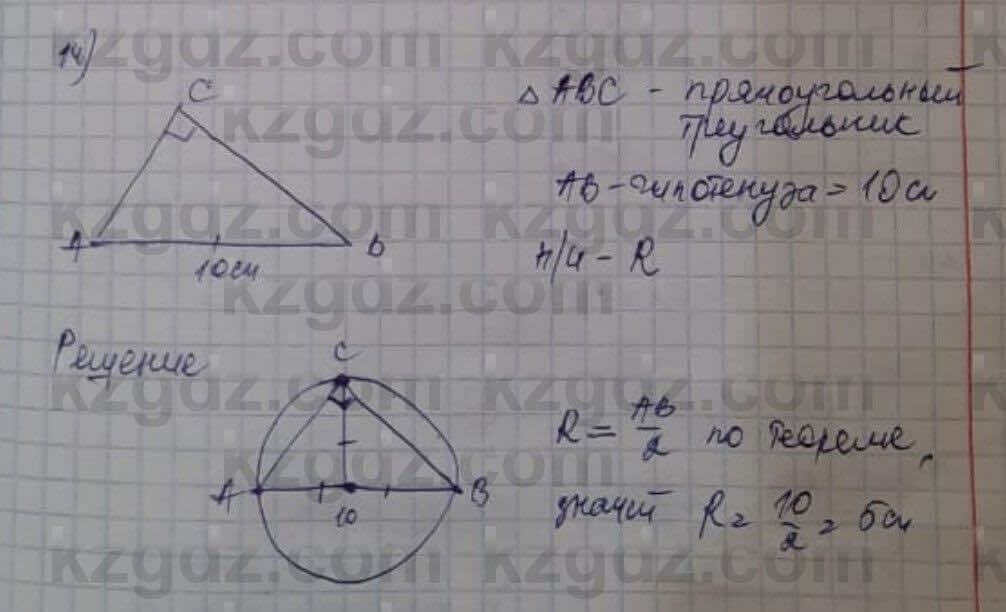 14)
C
△ ABC - прямоугольный
треугольник
AB - гипотенуза = 10 см
A
B
10 см
н/и - R
Решение
C
R = AB/2 по теореме,
A
B
10
значит R = 10/2 = 5 см
kzgdz.com